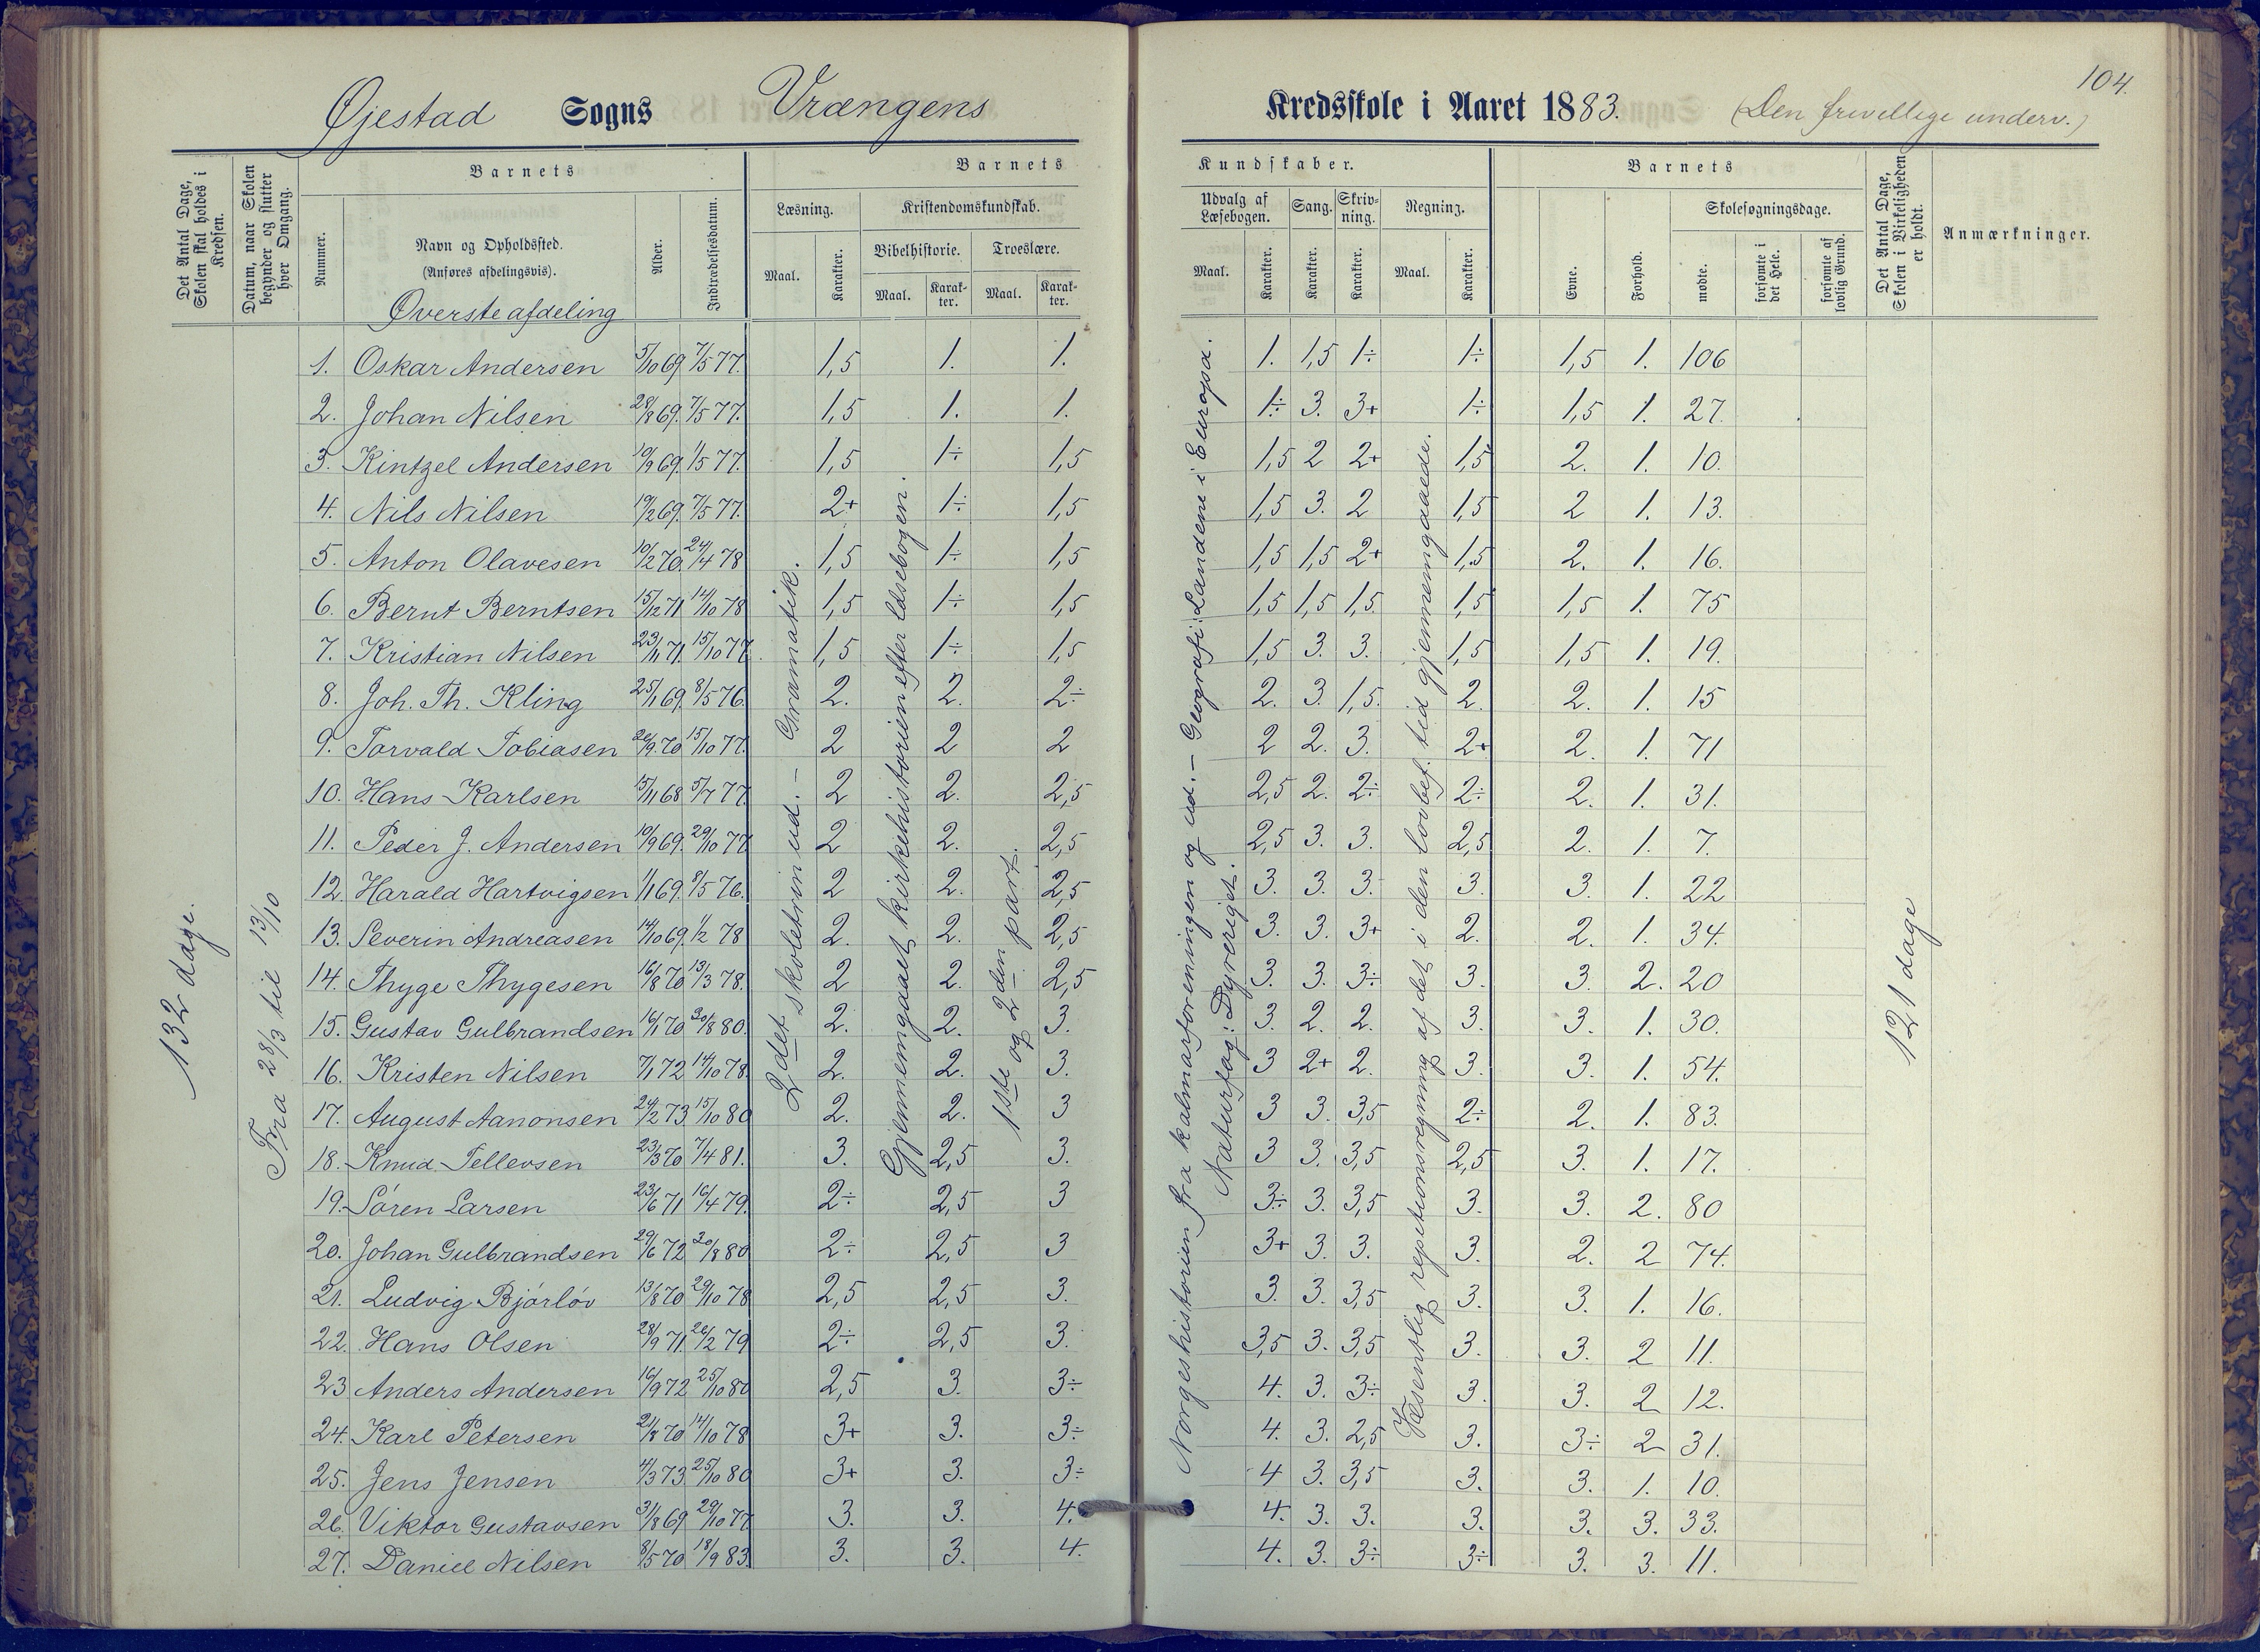 104.
Øjestad Sogns Vrængens Kredsskole i Aaret 1883. (Den frivillige underv.)
Det Antal Dage, Skolen skal holdes i Kredsen.
Datum, naar Skolen begynder og slutter hver Omgang.
Barnets
Nummer.
Navn og Opholdssted.
(Anføres afdelingsvis).
Øverste afdeling
Alder.
Indtrædelsesdatum.
Barnets
Læsning.
Maal.
Karakter.
Kristendomskundskab.
Bibelhistorie.
Maal.
Karakter.
Troeslære.
Maal.
Karakter.
Kundskaber.
Udvalg af Læsebogen.
Maal.
Karakter.
Sang.
Karakter.
Skrivning.
Karakter.
Regning.
Maal.
Karakter.
Barnets
Evne.
Forhold.
Skolesøgningsdage.
mødte.
forsømte i det Hele.
forsømte af lovlig Grund.
Det Antal Dage, Skolen i Virkeligheden er holdt.
Anmærkninger.
132 dage.
Fra 28/3 til 13/10
2det skoletrin ud. – Gramatik.
Gjennemgaaet kirkehistorien efter læsebogen.
1ste og 2den part.
Norgeshistorien fra kalmarforeningen og ud. – Geografi: Landene i Europa.
Naturfag: Dyreriget.
Væsentlig repetitionsregning af det i den lovbef. tid gjennemgaaede.
121 dage
1. Oskar Andersen 5/10 69 7/5 77. 1,5 1. 1. 1. 1,5 1÷ 1÷ 1,5 1. 106
2. Johan Nilsen 28/8 69. 7/5 77. 1,5 1. 1. 1÷ 3. 3+ 1÷ 1,5 1. 27.
3. Kintzel Andersen 19/9 69. 1/5 77. 1,5 1÷ 1,5 1,5 2 2+ 1,5 2. 1. 10.
4. Nils Nilsen 19/2 69. 7/5 77. 2+ 1÷ 1,5 1,5 3. 2 1,5 2 1. 13.
5. Anton Olavesen 10/2 70. 24/4 78 1,5 1÷ 1,5 1,5 1,5 2+ 1,5 2. 1. 16.
6. Bernt Berntsen 15/12 71 14/10 78 1,5 1÷ 1,5 1,5 1,5 1,5 1,5 1,5 1. 75
7. Kristian Nilsen 23/11 71. 15/10 77. 1,5 1÷ 1,5 1,5 3. 3. 1,5 1,5 1. 19.
8. Joh. Th. Kling 25/1 69. 8/5 76. 2. 2. 2÷ 2. 3. 1,5. 2. 2. 1. 15
9. Torvald Tobiasen 26/9 70 15/10 77. 2 2 2 2 2. 3. 2+ 2. 1. 71
10. Hans Karlsen 15/11 68 5/7 77. 2 2. 2,5 2,5 2. 2÷ 2÷ 2. 1. 31.
11. Peder J. Andersen 10/9 69. 29/10 77 2 2. 2,5 2,5 3. 3. 2,5 2. 1. 7.
12. Harald Hartvigsen 1/1 69. 9/5 76. 2 2. 2,5 3. 3. 3. 3. 3. 1. 22
13. Severin Andreasen 14/10 69. 1/2 78 2. 2. 2,5 3. 3. 3+ 2. 2. 1. 34.
14. Thyge Thygesen 16/8 70 13/3 78. 2 2. 2,5 3. 3. 3÷ 3. 3. 2. 20
15. Gustav Gulbrandsen 16/1 70 30/8 80. 2. 2. 3. 3. 2. 2. 3. 3. 1. 30.
16. Kristen Nilsen 7/1 72 14/10 78. 2. 2. 3. 3 2+ 2. 3. 3. 1. 54.
17. August Aanonsen 24/2 73 15/10 80 2. 2. 3 3 3. 3,5 2÷ 2. 1. 83.
18. Knud Tellevsen 23/3 70 7/4 81. 3. 2,5 3. 3 3. 3,5 2,5 3. 1. 17.
19. Sören Larsen 23/6 71 16/4 79. 2÷ 2,5 3 3÷ 3. 3,5 3. 3. 2. 80
20. Johan Gulbrandsen 29/6 72 30/8 80 2÷ 2,5 3 3+ 3. 3. 3. 2. 2 74.
21. Ludvig Bjórlóv 13/8 70 29/10 78 2,5 2,5 3. 3. 3. 3,5 3. 3. 1. 16.
22. Hans Olsen 28/9 71. 26/2 79 2÷ 2,5 3. 3,5 3. 3,5 3. 3. 2 11.
23 Anders Andersen 16/9 72 25/10 80 2,5 3. 3÷ 4. 3. 3÷ 3. 3. 2 12.
24. Karl Petersen 21/8 70 14/10 78 3+ 3. 3÷ 4. 3. 2,5 3. 3÷ 2 31.
25. Jens Jensen 4/3 73 25/10 80 3+ 3. 3÷ 4 3. 3,5 3. 3. 1. 10.
26. Viktor Gustavsen 31/8 69 29/10 77 3. 3. 4. 4. 3. 3. 3. 3. 3. 33.
27. Daniel Nilsen 8/5 70 18/9 83 3. 3. 4. 4. 3. 3÷ 3÷ 3. 3. 11.